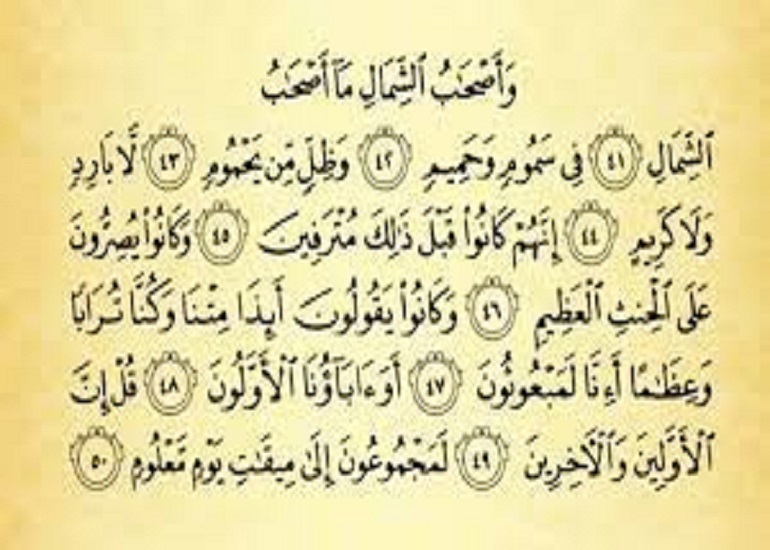 وَأَصْحَٰبُ ٱلشِّمَالِ مَآ أَصْحَٰبُ
ٱلشِّمَالِ ٤١ فِى سَمُومٍ وَحَمِيمٍ ٤٢ وَظِلٍّ مِّن يَحْمُومٍ ٤٣ لَّا بَارِدٍ
وَلَا كَرِيمٍ ٤٤ إِنَّهُمْ كَانُوا۟ قَبْلَ ذَٰلِكَ مُتْرَفِينَ ٤٥ وَكَانُوا۟ يُصِرُّونَ
عَلَى ٱلْحِنثِ ٱلْعَظِيمِ ٤٦ وَكَانُوا۟ يَقُولُونَ أَئِذَا مِتْنَا وَكُنَّا تُرَابًا
وَعِظَٰمًا أَءِنَّا لَمَبْعُوثُونَ ٤٧ أَوَءَابَآؤُنَا ٱلْأَوَّلُونَ ٤٨ قُلْ إِنَّ
ٱلْأَوَّلِينَ وَٱلْءَاخِرِينَ ٤٩ لَمَجْمُوعُونَ إِلَىٰ مِيقَٰتِ يَوْمٍ مَّعْلُومٍ ٥٠